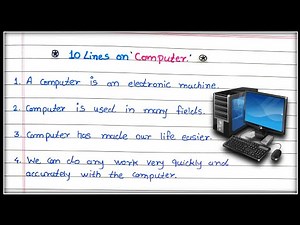 10 Lines on 'Computer.'
1. A computer is an electronic machine.
2. Computer is used in many fields.
3. Computer has made our life easier.
4. We can do any work very quickly and
accurately with the computer.